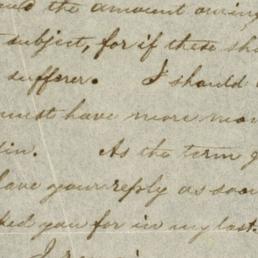 the amount owing
subject, for if these sho
sufferer. I should
must have more mon
lin. As the term
have your reply as soon
ked you for in my last.
I remain